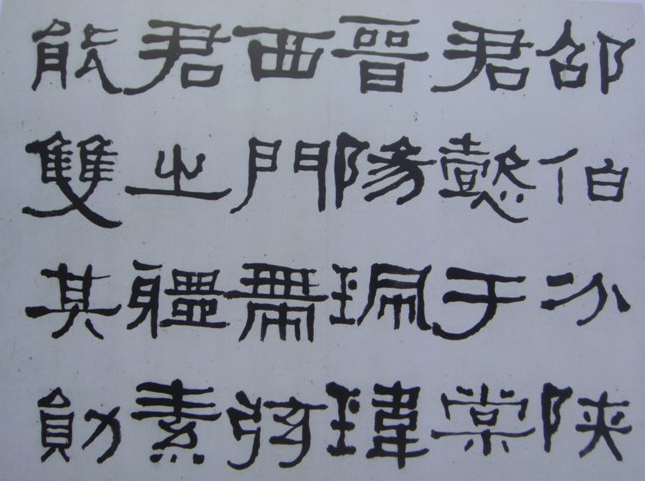 邵伯分陝
君懿于棠
晉陽珮瑋
西門帶弦
君之體素
能雙其勛